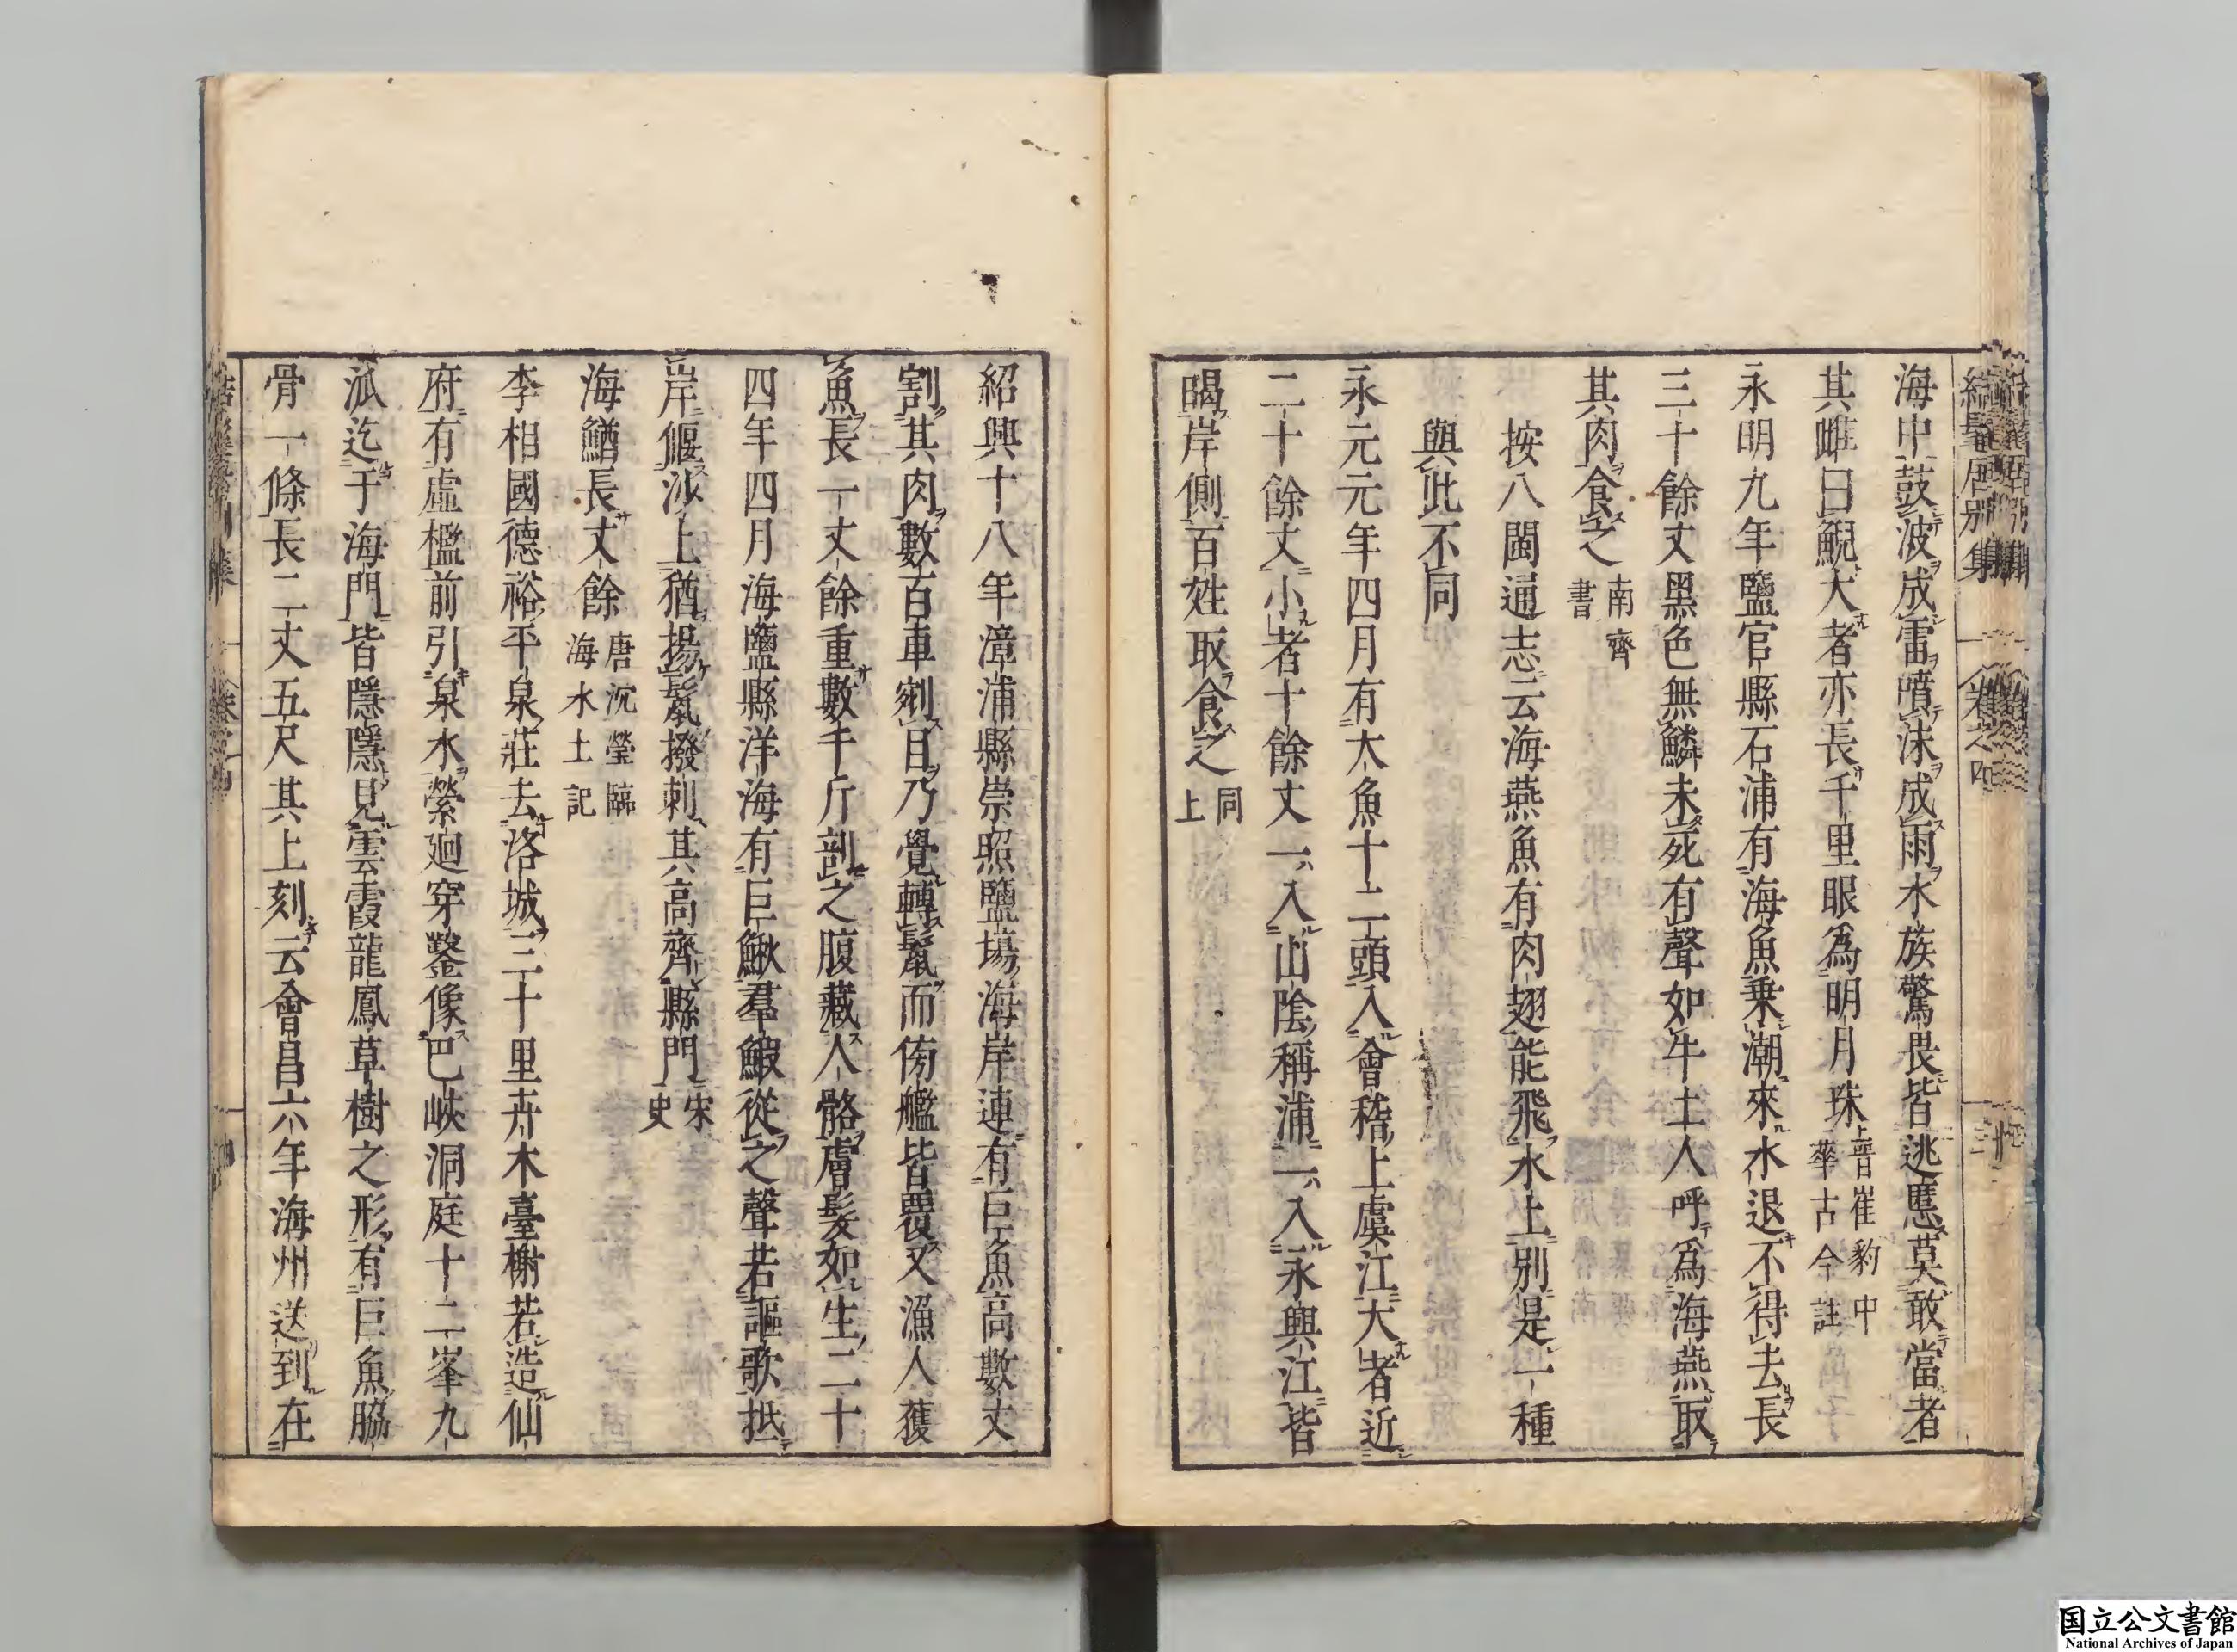 結髦居別集 卷之四
海中鼓波成雷噴沫成雨水族驚畏皆逃匿莫敢當者
其雌曰鯢大者亦長千里眼爲明月珠 晉崔豹中華古今註
永明九年鹽官縣石浦有海魚乗潮來水退不得去長
三十餘丈黑色無鱗未死有聲如牛土人呼爲海燕取
其肉食之 南齊書
按八閩通志云海燕魚有肉翅能飛水上別是一種
與此不同
永元元年四月有大魚十二頭入會稽上虞江大者近
二十餘丈小者十餘丈一入山陰稱浦一入永興江皆
暍岸側百姓取食之 同上
紹興十八年漳浦縣崇照鹽場海岸連有巨魚高數丈
割其肉數百車剜目乃覺轉鬣而傍艦皆覆又漁人獲
魚長一丈餘重數千斤剖之腹藏人骼膚髮如生二十
四年四月海鹽縣洋海有巨鰍羣鰕從之聲若謳歌抵
岸偃沙上猶揚鬣撥刺其高齊縣門 宋史
海鰌長丈餘 唐沈瑩臨海水土記
李相國德裕平泉莊去洛城三十里卉木臺榭若造仙
府有虛檻前引泉水縈廻穿鑿像巴峽洞庭十二峯九
泒迄于海門皆隱隱見雲霞龍鳳草樹之形有巨魚脇
骨一條長二丈五尺其上刻云會昌六年海州送到在
国立公文書館
National Archives of Japan